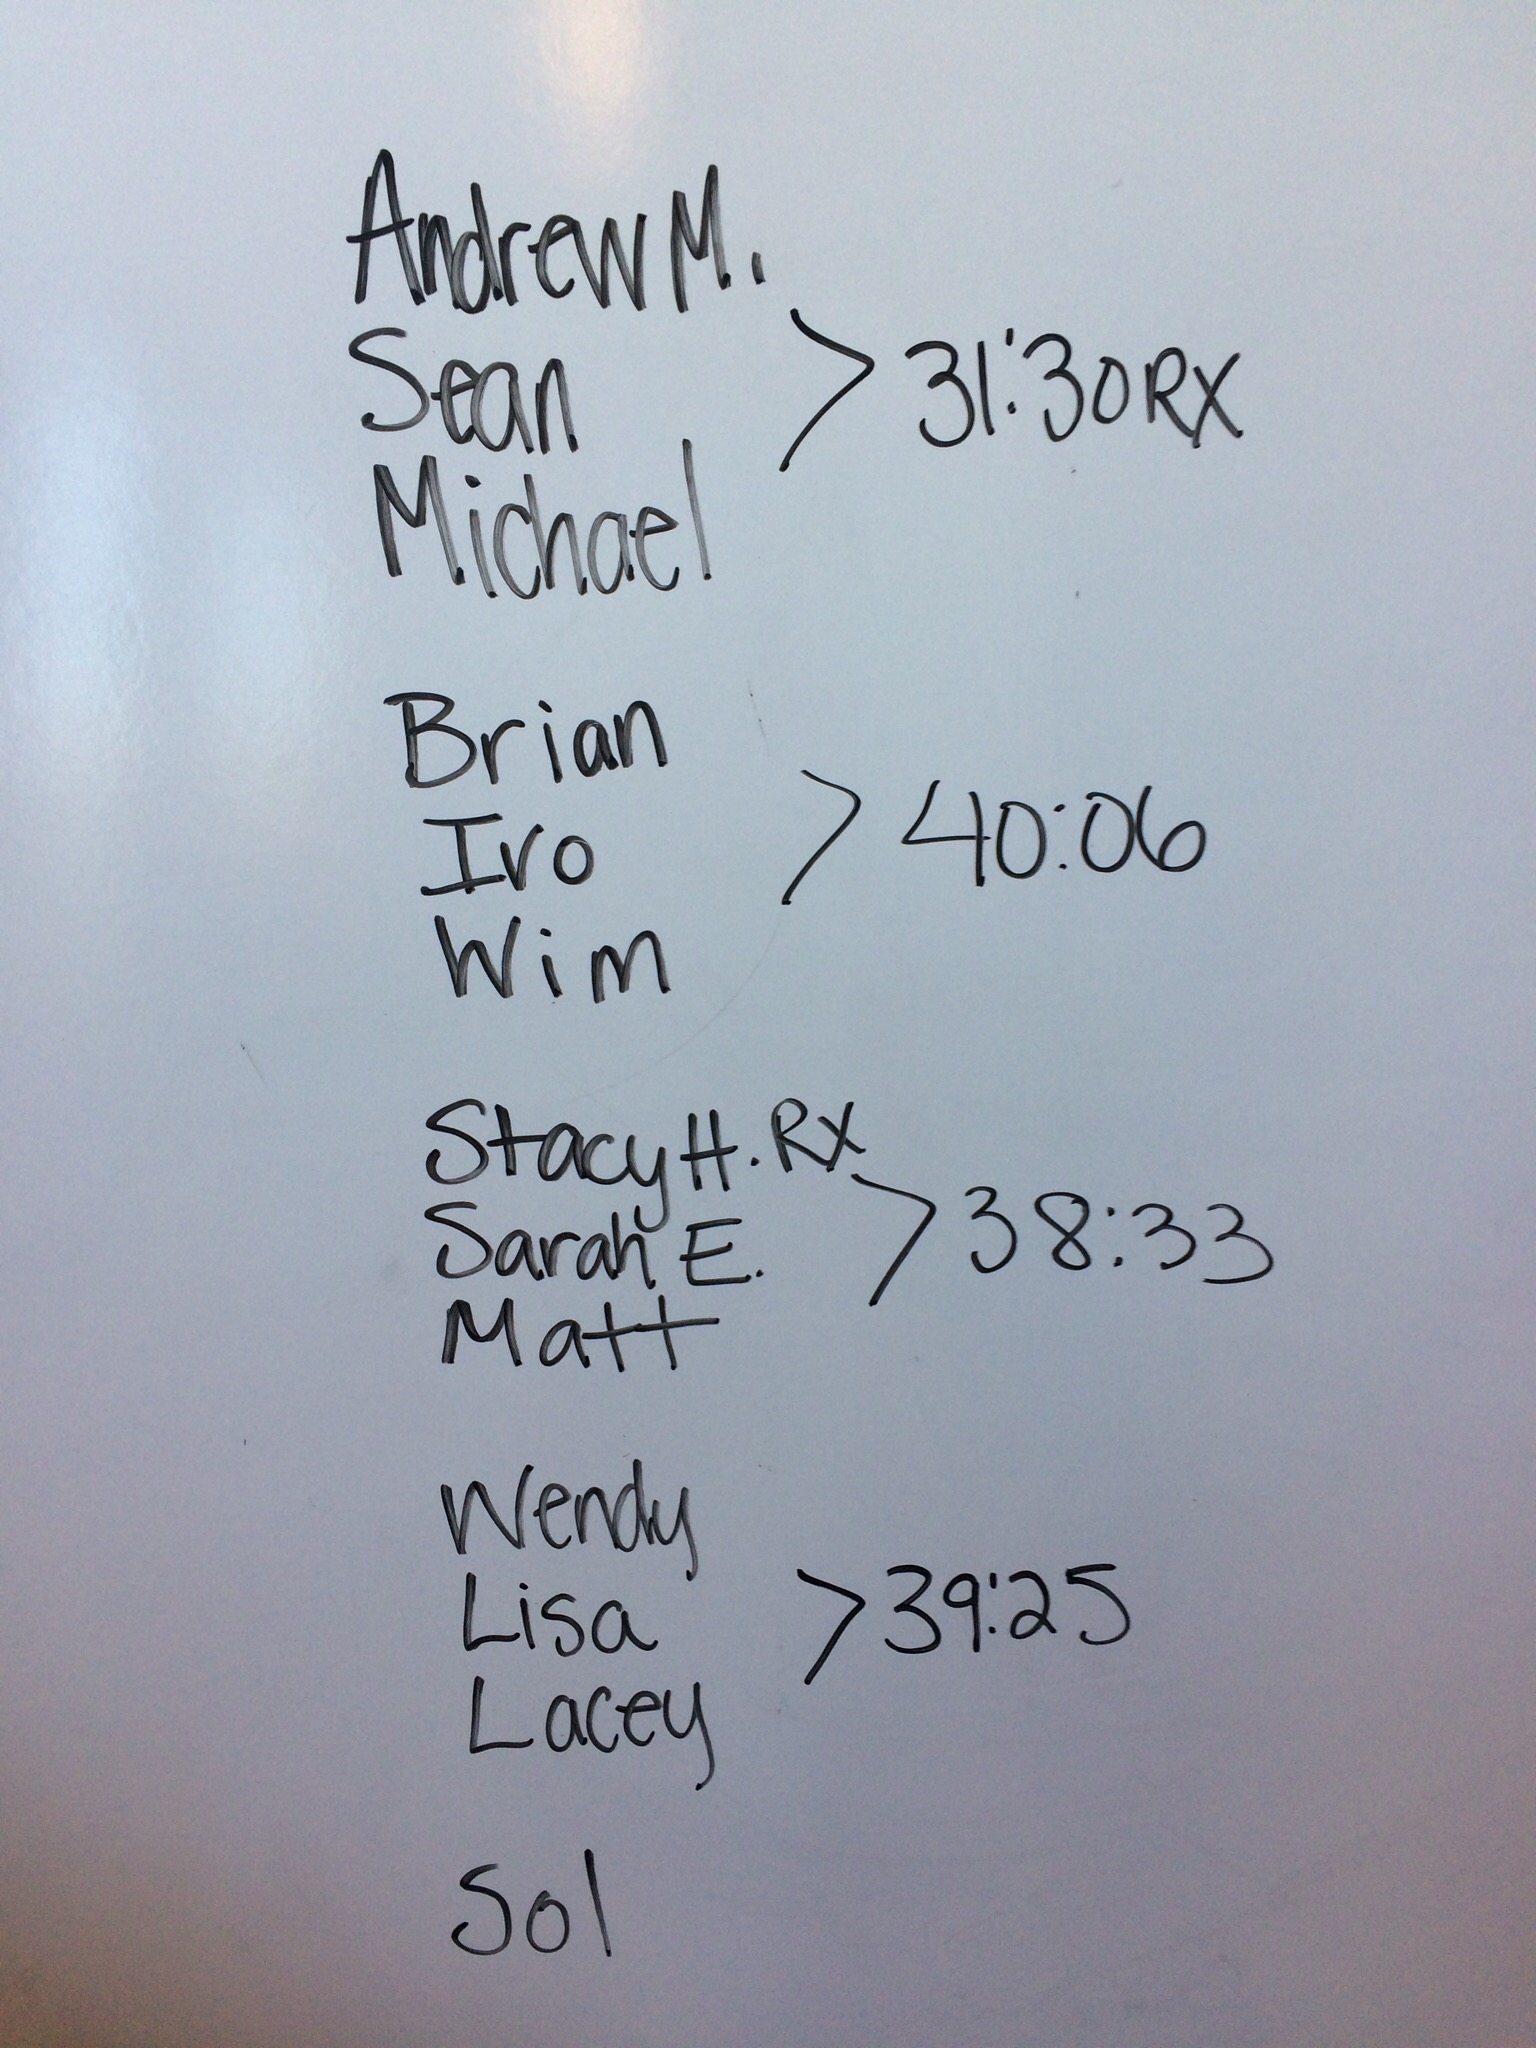 Andrew M.
Sean > 31:30 RX
Michael
Brian
Ivo > 40:06
Wim
Stacy H. RX
Sarah E. > 38:33
Matt
Wendy
Lisa > 39:25
Lacey
Sol